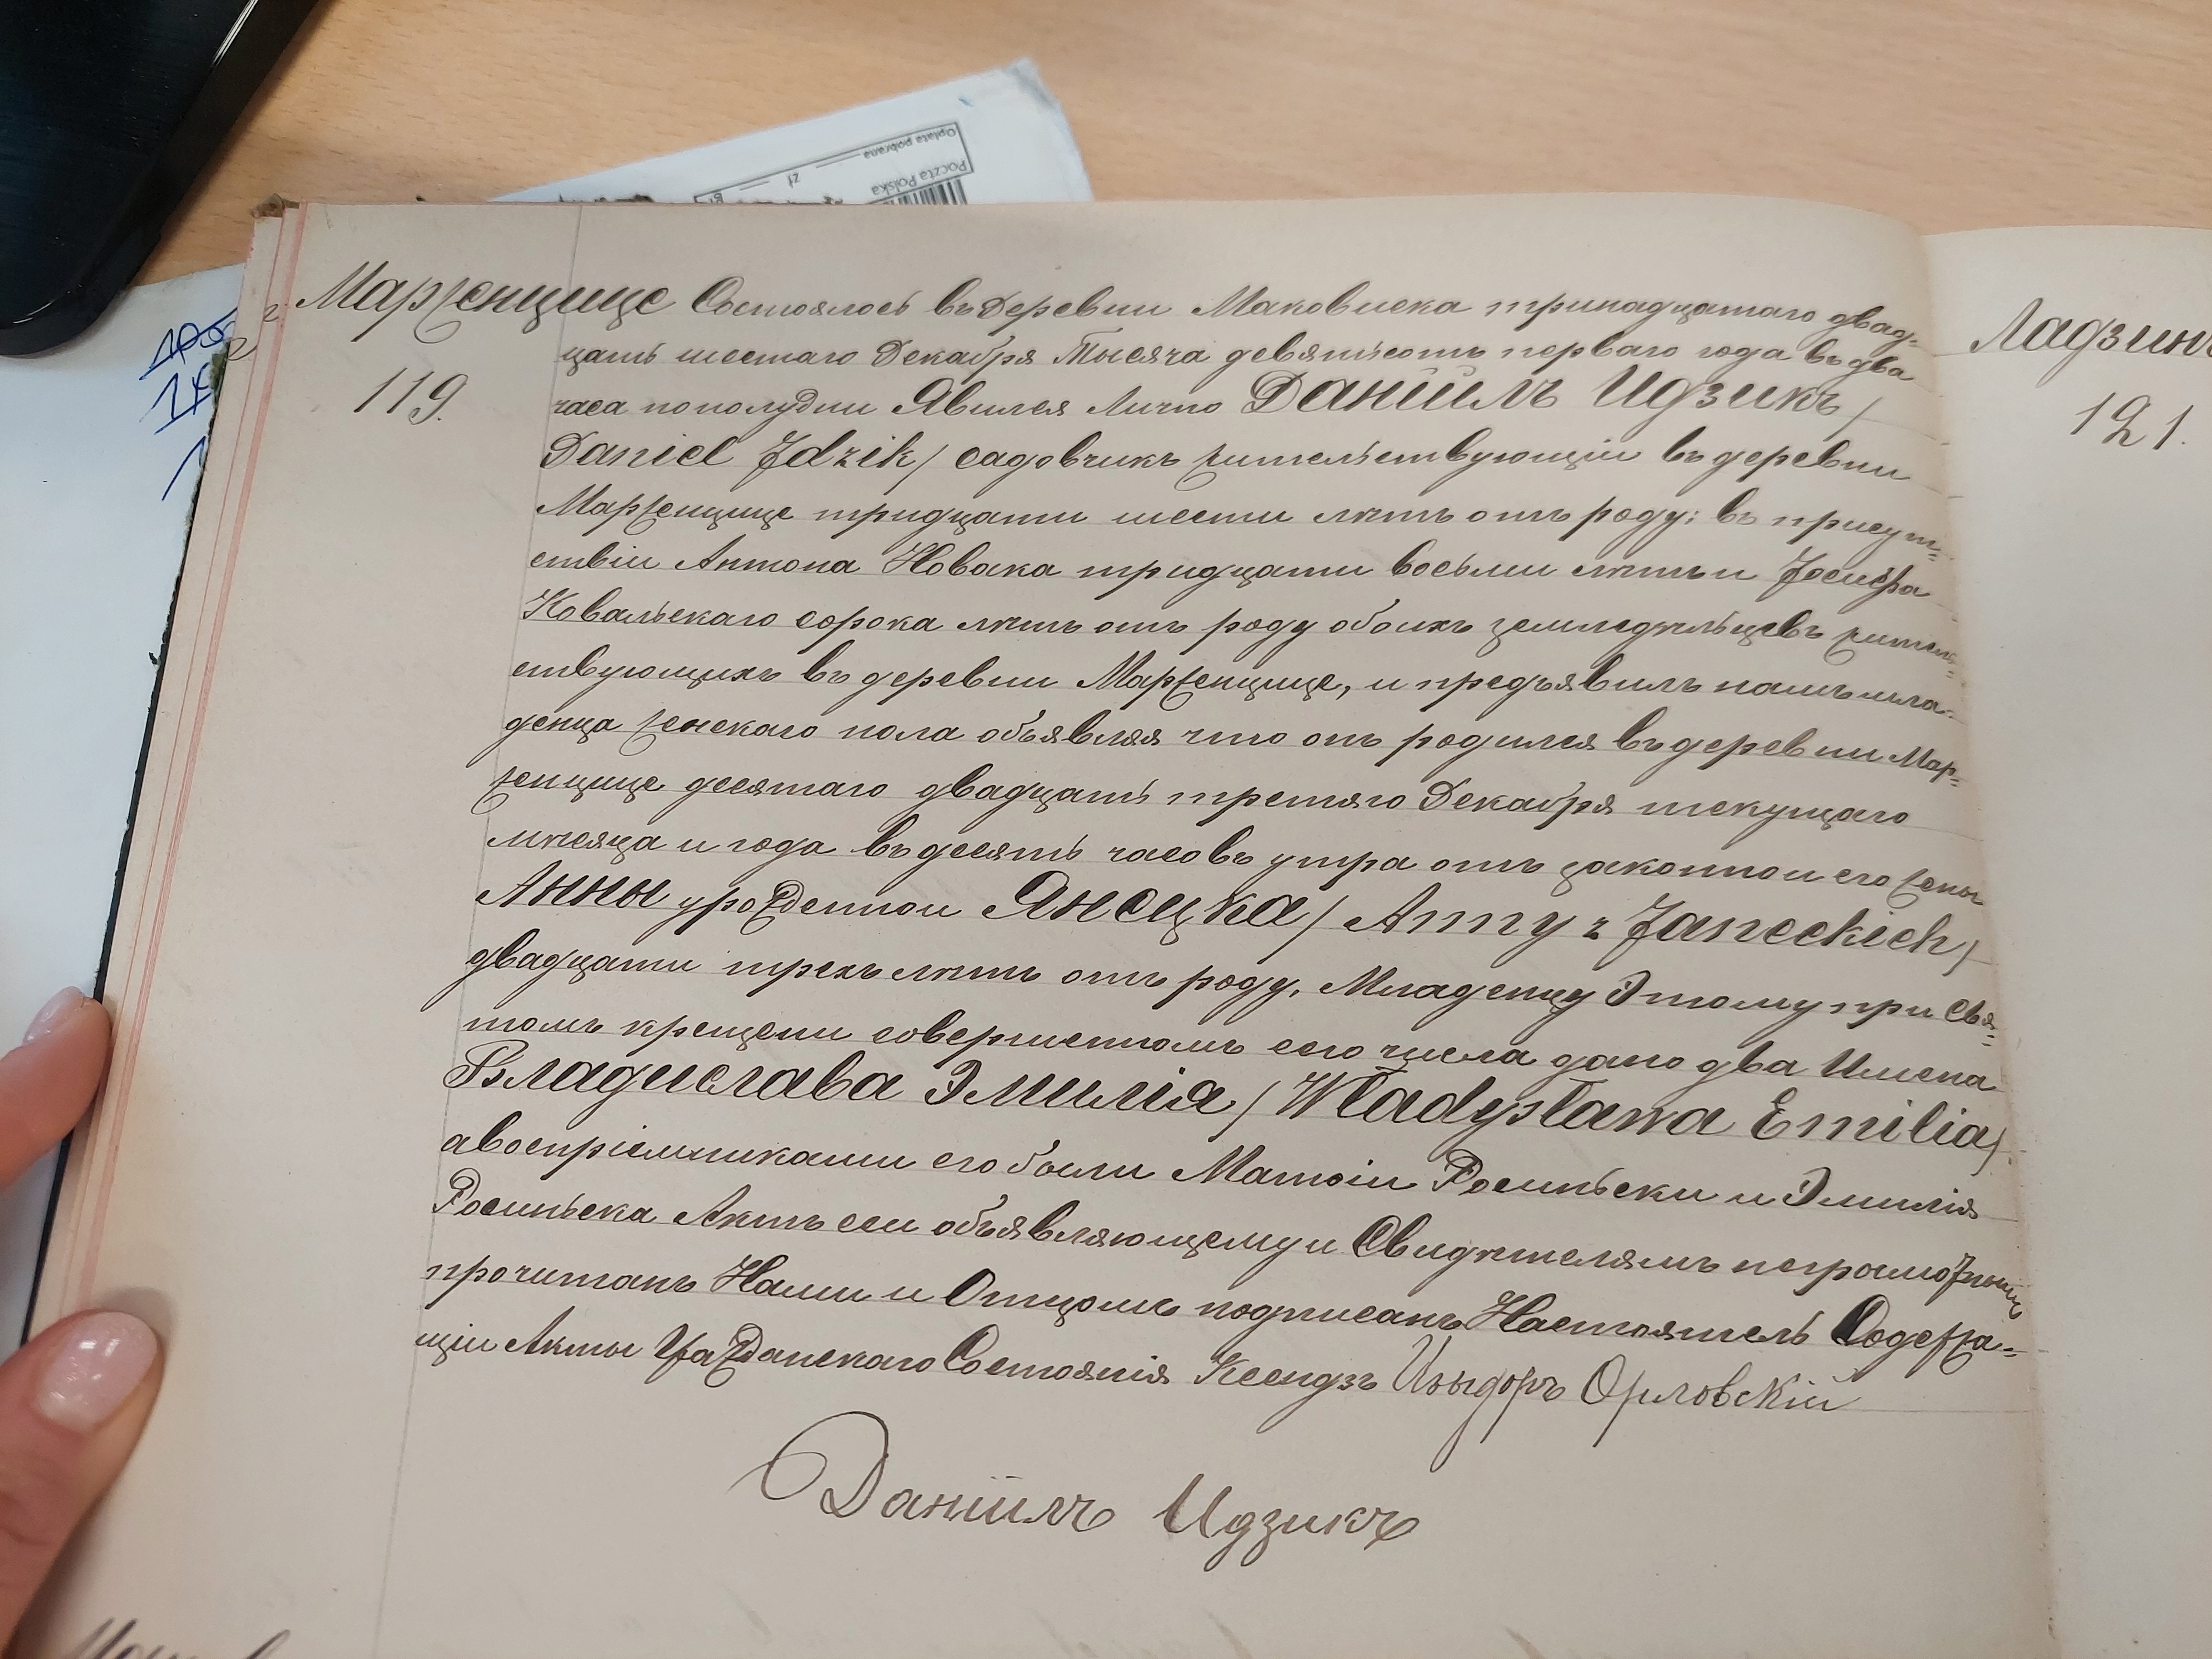 Opłata pobrana
zł
gr
Poczta Polska
Марженщице
119.
Состоялось въ деревни Маковиска тринадцатаго двад-
цать шестаго Декабря Тысяча девятьсотъ перваго года въ два
часа пополудни Явился Лично Даніилъ Идзикъ /
Daniel Jdzik / садовчикъ жительствующіи въ деревни
Марженщице тридцати шести лѣтъ отъ роду; въ присут=
ствіи Антона Новака тридцати восьми лѣтъ и Јосифа
Ковальскаго сорока лѣтъ отъ роду обоихъ земледѣльцевъ житель=
ствующихъ въ деревни Марженщице, и предъявилъ намъ мла-
денца женскаго пола объявляя что онъ родился въ деревни Мар-
женщице десятаго двадцать третяго Декабря текущаго
мѣсяца и года въ десять часовъ утра отъ законнои его жены
Анны урожденнои Янецка / Anny z Janeckich /
двадцати трехъ лѣтъ отъ роду, Младенцу Этому при Свя=
томъ крещени совершенномъ сего числа дано два Имена
Владислава Эмилія / Władysława Emilia /
авоспріемниками его были Матөіи Росиньски и Эмилія
Росиньска Актъ сеи объявляющему и Свидѣтелямъ неграмотнымъ
прочитанъ Нами и Отцомъ подписанъ Настоятель Содержа=
щіи Акты Гражданскаго Состоянія Ксендзъ Изыдоръ Орловскій
Даніилъ Идзикъ
121.